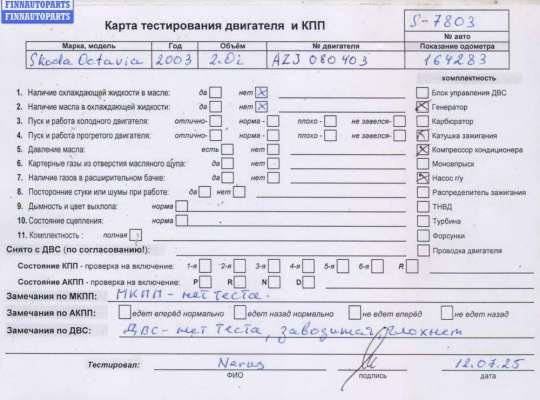 FINNAUTOPARTS
FINNAUTOPARTS
Карта тестирования двигателя и КПП
S-7803
№ авто
Марка, модель Год Объём № двигателя Показание одометра
Skoda Octavia 2003 2.0i AZJ 080403 164283
комплектность
1. Наличие охлаждающей жидкости в масле: да нет
Блок управления ДВС
2. Наличие масла в охлаждающей жидкости: да нет
Генератор
3. Пуск и работа холодного двигателя: отлично- норма - плохо - не завелся-
Карбюратор
4. Пуск и работа прогретого двигателя: отлично- норма - плохо - не завелся-
Катушка зажигания
5. Давление масла: есть нет
Компрессор кондиционера
6. Картерные газы из отверстия масляного щупа: да нет
Моновпрыск
7. Наличие газов в расширительном бачке: да нет
Насос г/у
8. Посторонние стуки или шумы при работе: да нет
Распределитель зажигания
9. Дымность и цвет выхлопа: норма
ТНВД
10. Состояние сцепления: норма
Турбина
11. Комплектность : полная
Форсунки
Снято с ДВС (по согласованию!):
Проводка двигателя
Состояние КПП - проверка на включение: 1-я 2-я 3-я 4-я 5-я 6-я R
Состояние АКПП - проверка на включение: P R N D
Замечания по МКПП: МКПП - нет теста.
Замечания по АКПП: едет вперёд нормально едет назад нормально не едет вперёд не едет назад
Замечания по ДВС: ДВС - нет теста, заводится, глохнет
Тестировал: 12.07.25
ФИО подпись дата